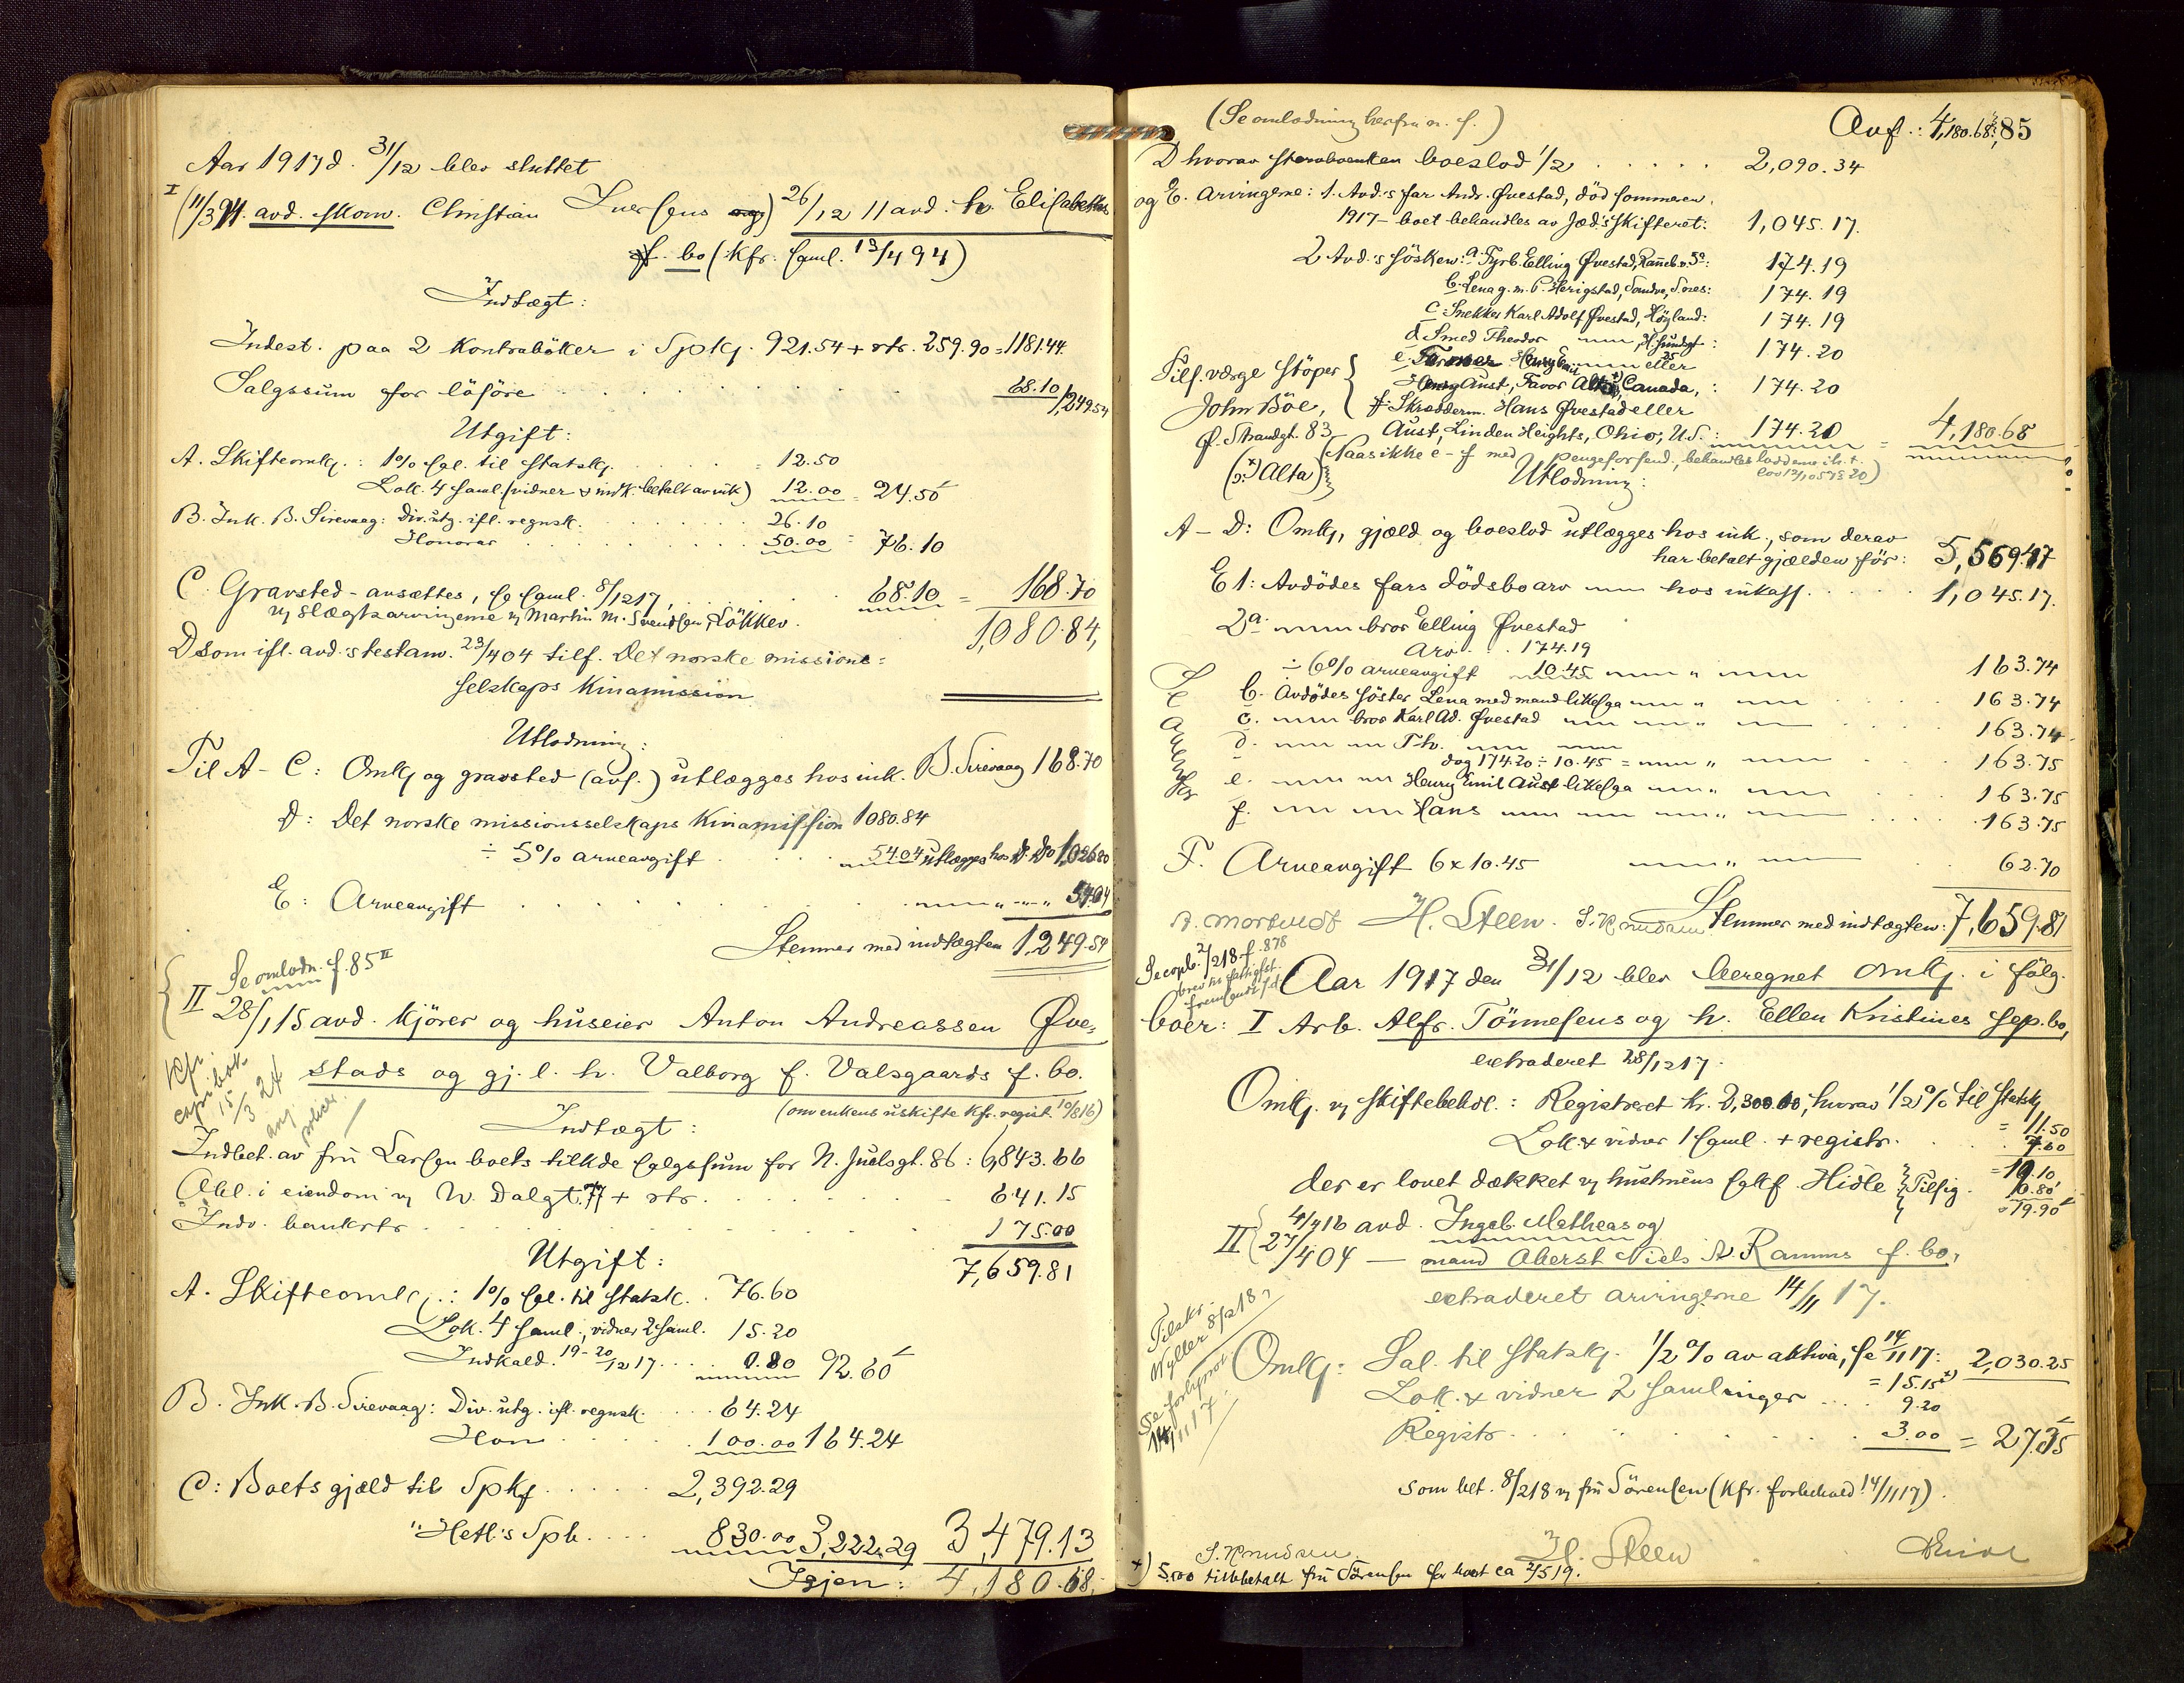 Aar 1917 d. 31/12 blev sluttet
I (11/3 91. avd. skom. Christian Iversens og) 26/12 11 avd. h. Elisabeths
f. bo (Kfr. saml. 13/4 94)
Indtægt:
Indest. paa 2 Kontraböker i Spkg. 921.54 + rtr. 259.90 = 1181.44
Salgssum for lösöre 68.10 / 1,249.54
Utgift:
A. Skifteomkg.: 1% sal. til Statsk. = 12.50
Lok. 4 saml. (vidner & indk. betalt av ink) 12.00 = 24.50
B. Ink. B. Sirevaag: Div. utg. ifl. regnsk. 26.10
Honorar 50.00 = 76.10
C. Gravsted - ansættes, se saml. 8/12 17, 68.10 = 168.70
v/ slægtsarvingerne v/ Martin M. Svendsen, Lökkev. 1,080.84,
D som ifl. avd.s testam. 23/4 04 tilf. Det norske missions=
selskaps Kinamission
Utlodning:
Til A - C: Omkg og gravsted (avs.) utlægges hos ink. B. Sirevaag 168.70
D: Det norske missionsselskaps Kinamission 1080.84
÷ 5% arveavgift 54.04 utlægges hos D. Do 1,026.80
E: Arveavgift 54.04
Stemmer med indtægten 1,249.54
Se omlodn. f. 85 II
II 28/1 15 avd. kjörer og huseier Anton Andreassen Øve=
stads og gj. l. h. Valborg f. Valsgaards f. bo.
Kfr. 15/3 24 ang. police
(om enkens uskifte kfr. regist. 10/8 16)
Indtægt:
Indbet. av fru Larsen boets tilkde salgssum for N. Juelsgt. 86: 6,843.66
Obl. i eiendom v/ W. Dalgt. 77 + rtr. 641.15
Indv. bankrtr 175.00
Utgift: 7,659.81
A. Skifteomkg.: 1% sal. til Statsk. 76.60
Lok. 4 saml., vidner 2 saml. 15.20
Indkald. 19-20/12 17 0.80 92.60
B. Ink. B. Sirevaag: Div. utg. ifl. regnsk. 64.24
Hon 100.00 164.24
C: Boets gjæld til Spkg 2,392.29
" Hetl.s Spb. 830.00 3,222.29 3,479.13
Igjen: 4,180.68,
(Se omlodning herfra n. f.) Ovf.: 4,180.68, 85
D hvorav boeslod 1/2 2,090.34
og E. Arvingerne: 1. Avd.s far Andr. Øvestad, död sommeren
1917 - boet behandles av Jæd.s Skifteret: 1,045.17.
2 Avd.s söskew: a. Fyrb. Elling Øvestad, 174.19
b. Lena g. m. P. Herigstad, Sandnes: 174.19
c Snekker Karl Adolf Øvestad, Höyland: 174.19
d Smed Theodor : 174.20
Tilf. værge Stöper { e. Farmer eller
Henry Aust, Favor Alta, Canada, : 174.20
John Böe, f: Skrædderm. Hans Øvestad eller
Ø. Strandgt. 83 Aust, Linden Heights, Ohio, U.S.: 174.20 = 4,180.68
(Naas ikke e - f med pengeforsend., behandles
(o: x) Alta)
Utlodning:
A - D: Omkg, gjæld og boeslod utlægges hos ink., som derav
har betalt gjælden för: 5,569.47
E 1: Avdödes fars dödsbo arv hos inkass. 1,045.17.
2 a. bror Elling Øvestad
Arv 174.19
÷ 6% arveavgift 10.45 163.74
b. Avdödes söster Lena med mand likesaa 163.74
c. bror Karl Ad. Øvestad 163.74
d. Th.
dog 174.20 ÷ 10.45 = 163.75
e. Henry Emil Aust likesaa 163.75
f. Hans 163.75
F. Arveavgift 6 x 10.45 62.70
H. Steen. S. Knudsen Stemmer med indtægten: 7,659.81
Aar 1917 den 31/12 blev beregnet omkg. i fölg.
boer: I Arb. Alfr. Tönnesens og h. Ellen Kristines sep. bo,
extraderet 28/12 17.
Omkg. v/ skiftebehdl.: Registreret Kr. 2,300.00, hvorav 1/2% til Statskg
= 11.50
Lok. & vidner 1 saml. + registr. 7.60
= 19.10
der er lovet dækket v/ hustruens sakf. Hidle Tilsig. 0.80
= 19.90
II { 4/9 16 avd. Ingeb. Matheas og
27/4 04 — mand Oberst Niels A. Ramms f. bo,
extraderet arvingerne 14/11 17.
Omkg: Sal. til Statskg. 1/2% av aktiva, se 14/11 17: 2,030.25
= 15.15 x)
Lok. & vidner 2 samlinger 9.20
Registr. 3.00 = 27.35
som bet. 8/2 18 v/ fru Sörensen (kfr. forbehold 14/11 17).
S. Knudsen H. Steen
x) 5.00 tilbbetalt fru Sörensen for boet ca 2/5 19.